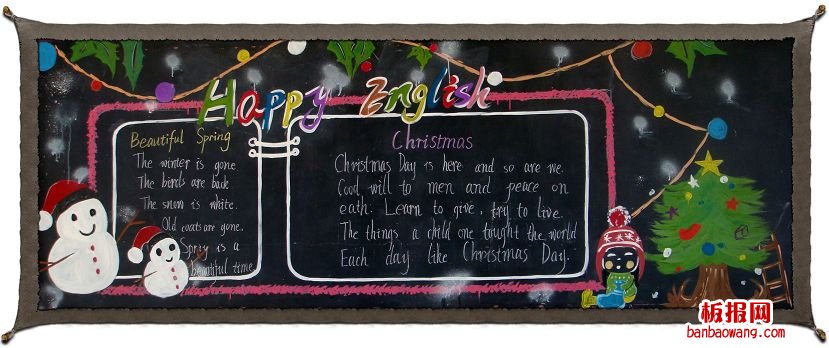 Happy English
Beautiful Spring
The winter is gone
The birds are back
The snow is white.
Old coats are gone.
Spriy is a
beautiful time
Christmas
Christmas Day is here and so are we.
Good will to men and peace on
eath. Learn to give, try to live.
The things a child one tought the world
Each day like Christmas Day.
板报网
banbaowang.com